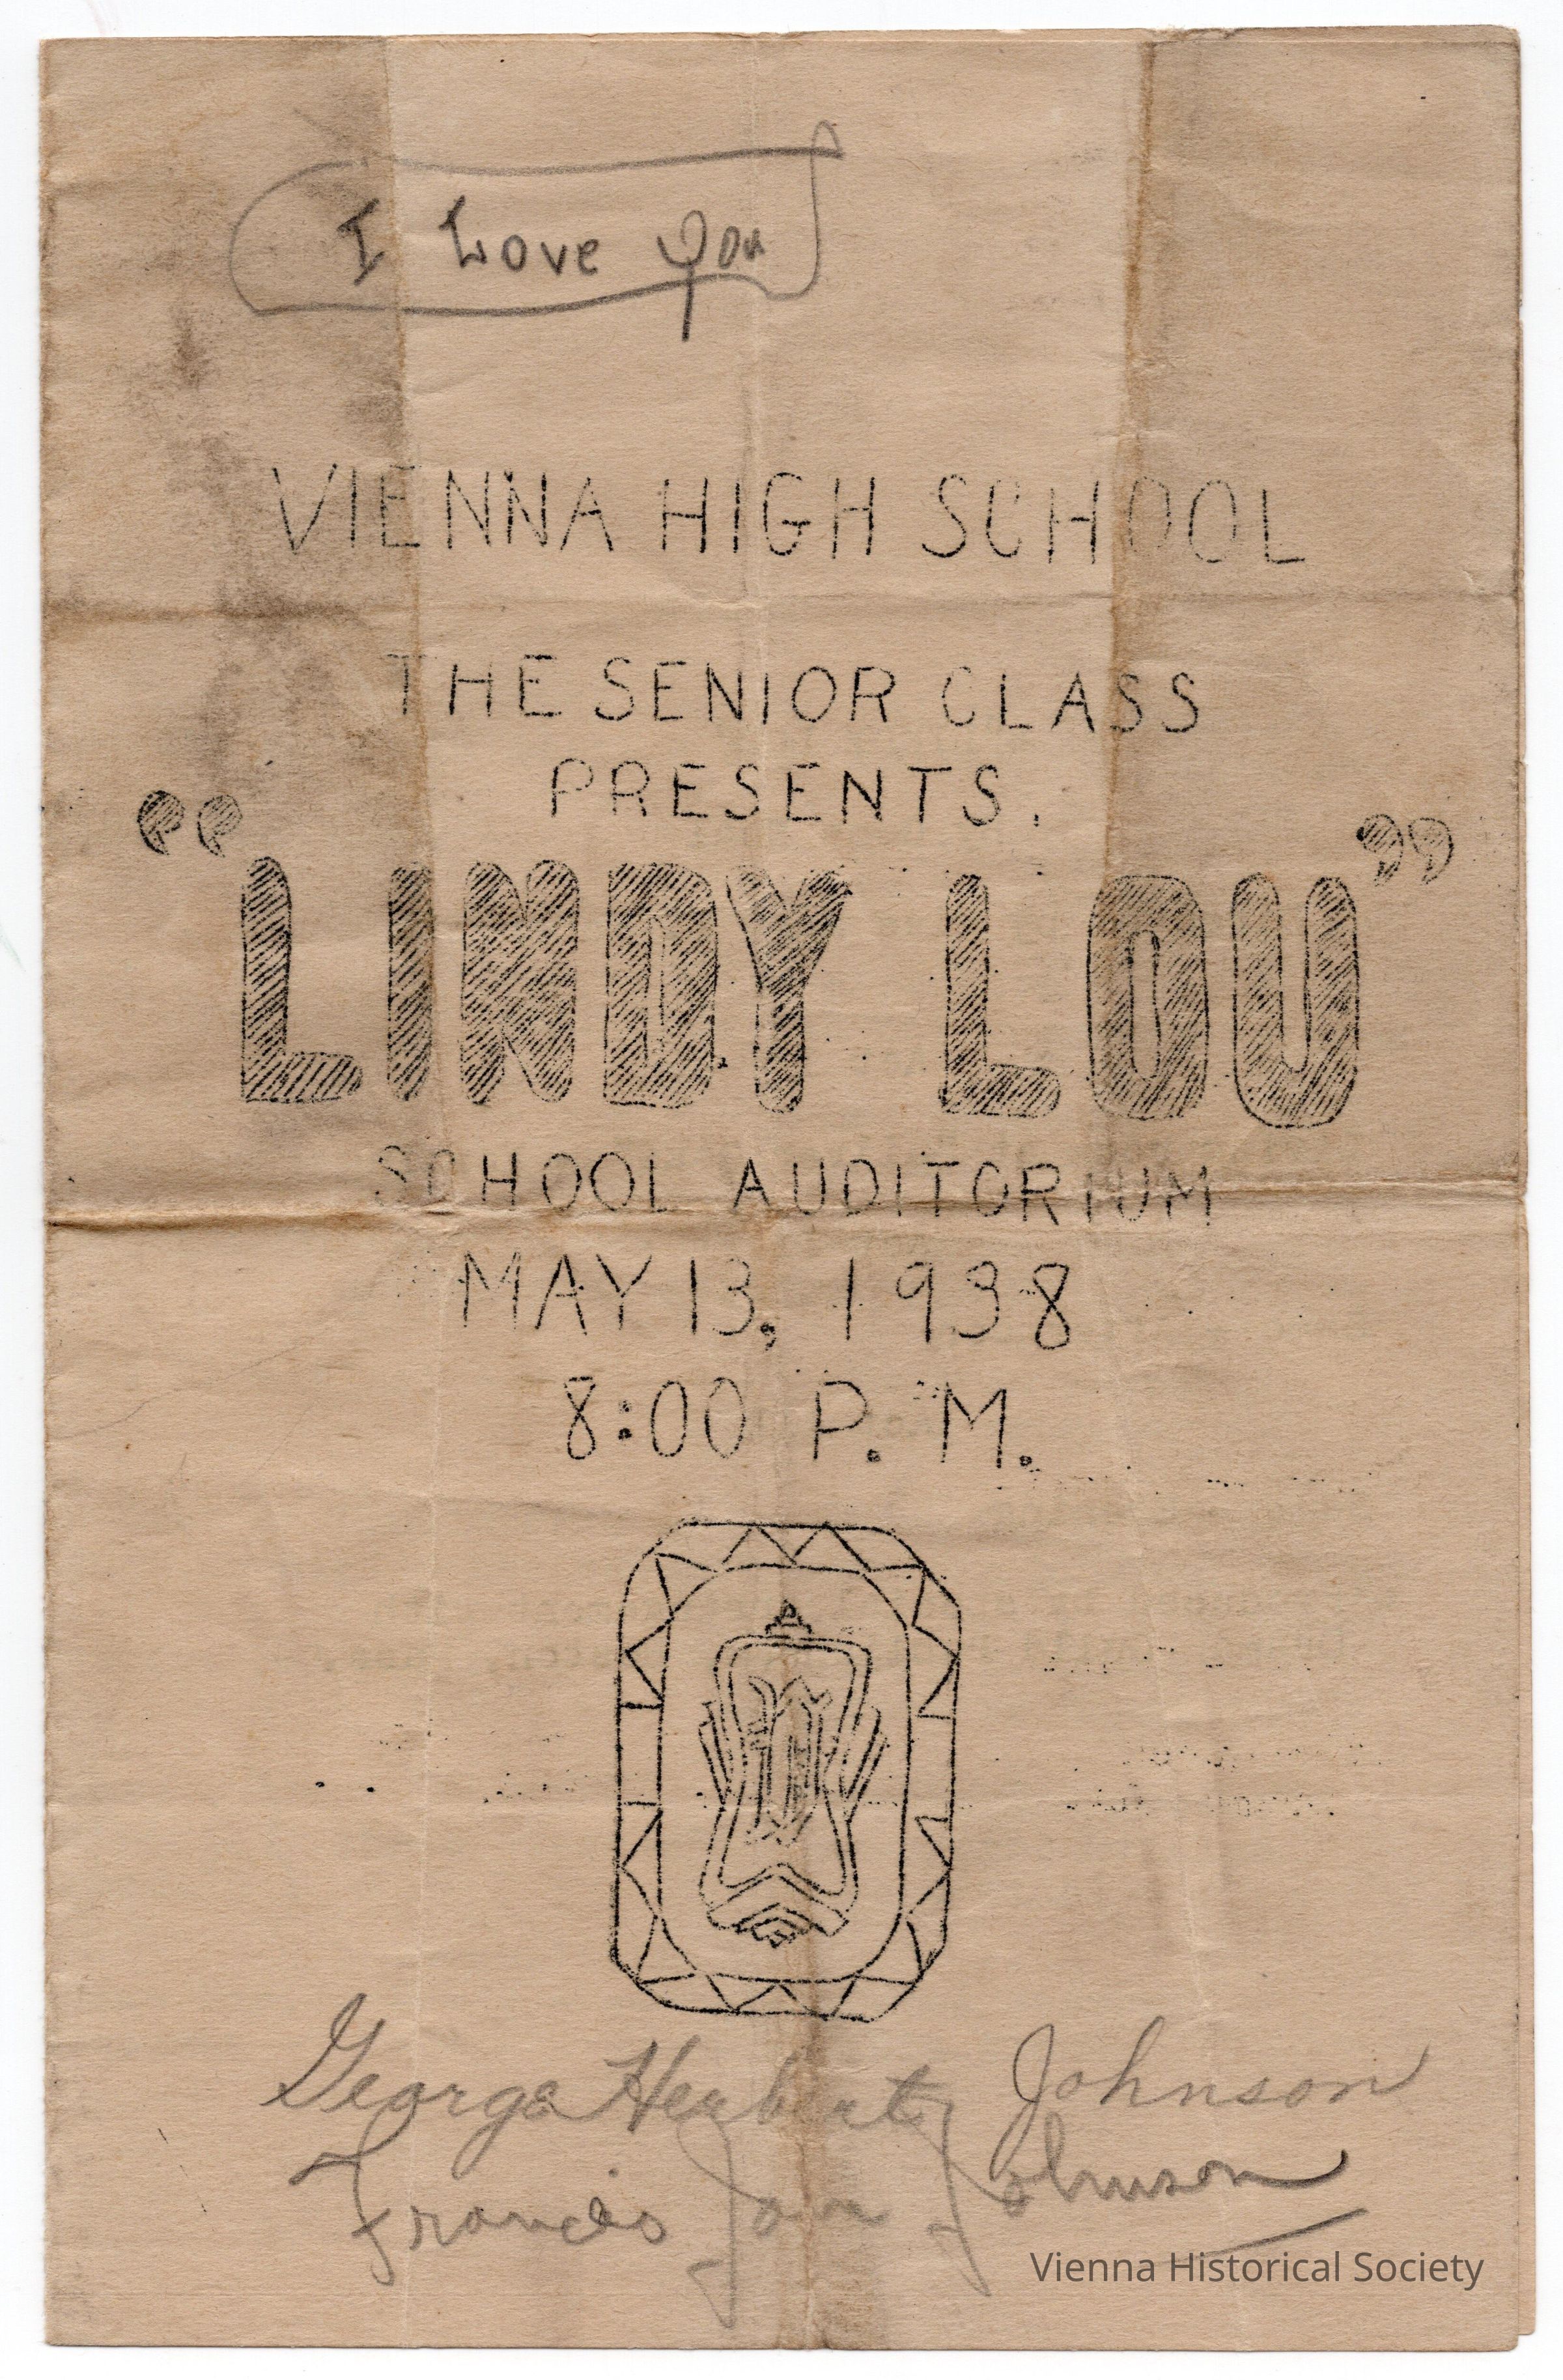 I Love You
VIENNA HIGH SCHOOL
THE SENIOR CLASS
PRESENTS.
“LINDY LOU”
SCHOOL AUDITORIUM
MAY 13, 1938
8:00 P. M.
George Herbert Johnson
Francis Johnson
Vienna Historical Society